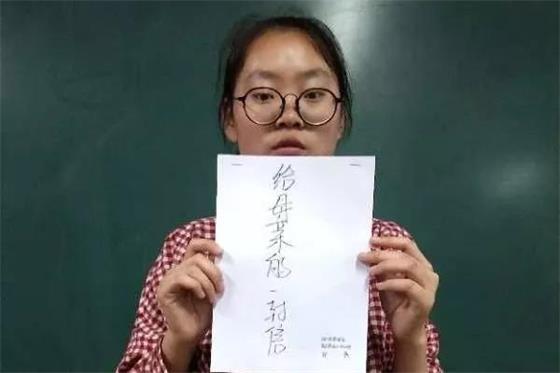 给母亲的一封信